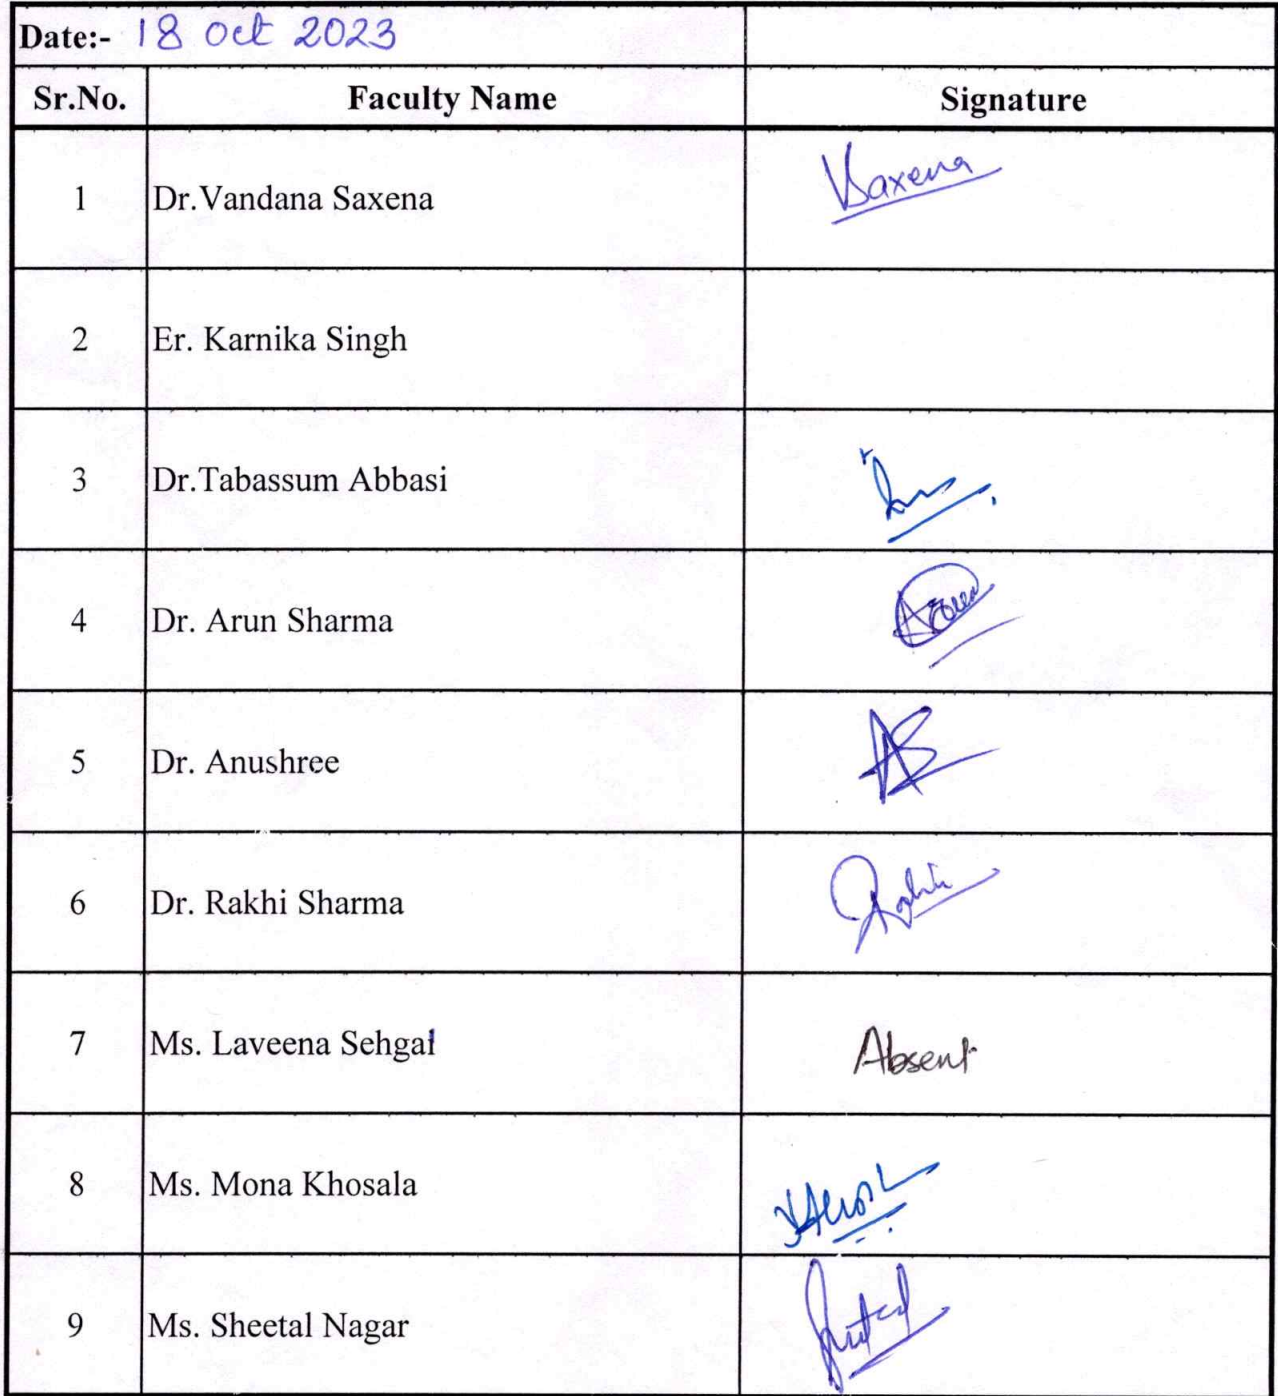 Date:- 18 Oct 2023
Sr.No. Faculty Name Signature
1 Dr.Vandana Saxena VSaxena
2 Er. Karnika Singh
3 Dr.Tabassum Abbasi
4 Dr. Arun Sharma
5 Dr. Anushree AS
6 Dr. Rakhi Sharma
7 Ms. Laveena Sehgal Absent
8 Ms. Mona Khosala
9 Ms. Sheetal Nagar